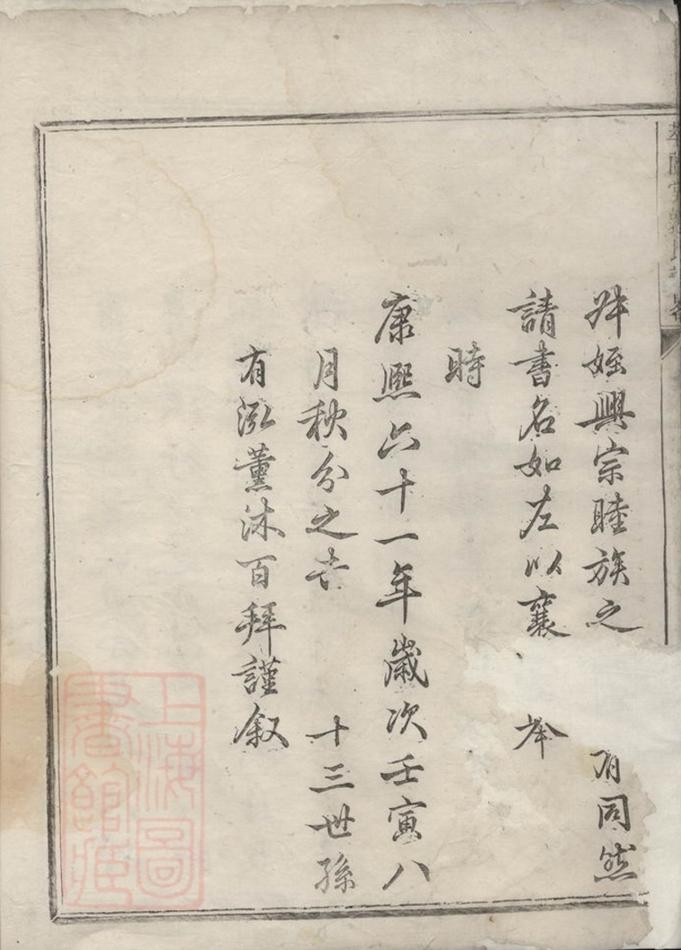 姪興宗睦族之 有同然
請書名如左以襄 举
時
康熙六十一年歲次壬寅八
月秋分之吉 十三世孫
有泓薰沐百拜謹叙
上海圖
書館藏